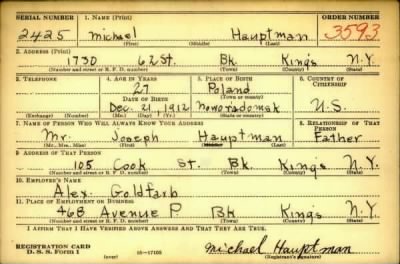 SERIAL NUMBER 1. NAME (Print) ORDER NUMBER
2425 Michael Hauptman 3593
(First) (Middle) (Last)
2. ADDRESS (Print)
1730 62 St. Bk. King's N.Y.
(Number and street or R. F. D. number) (Town) (County) (State)
3. TELEPHONE 4. AGE IN YEARS 5. PLACE OF BIRTH 6. COUNTRY OF CITIZENSHIP
27 Poland
DATE OF BIRTH
Dec. 21, 1912 Noworadomsk U.S.
(Exchange) (Number) (Mo.) (Day) (Yr.) (State or country)
7. NAME OF PERSON WHO WILL ALWAYS KNOW YOUR ADDRESS 8. RELATIONSHIP OF THAT PERSON
Mr. Joseph Hauptman Father
(Mr., Mrs., Miss) (First) (Middle) (Last)
9. ADDRESS OF THAT PERSON
105 Cook St. Bk. King's N.Y.
(Number and street or R. F. D. number) (Town) (County) (State)
10. EMPLOYER'S NAME
Alex Goldfarb
11. PLACE OF EMPLOYMENT OR BUSINESS
468 Avenue P Bk King's N.Y.
(Number and street or R. F. D. number) (Town) (County) (State)
I AFFIRM THAT I HAVE VERIFIED ABOVE ANSWERS AND THAT THEY ARE TRUE.
REGISTRATION CARD
D. S. S. Form 1 (over) 16—17105 Michael Hauptman
(Registrant's signature)